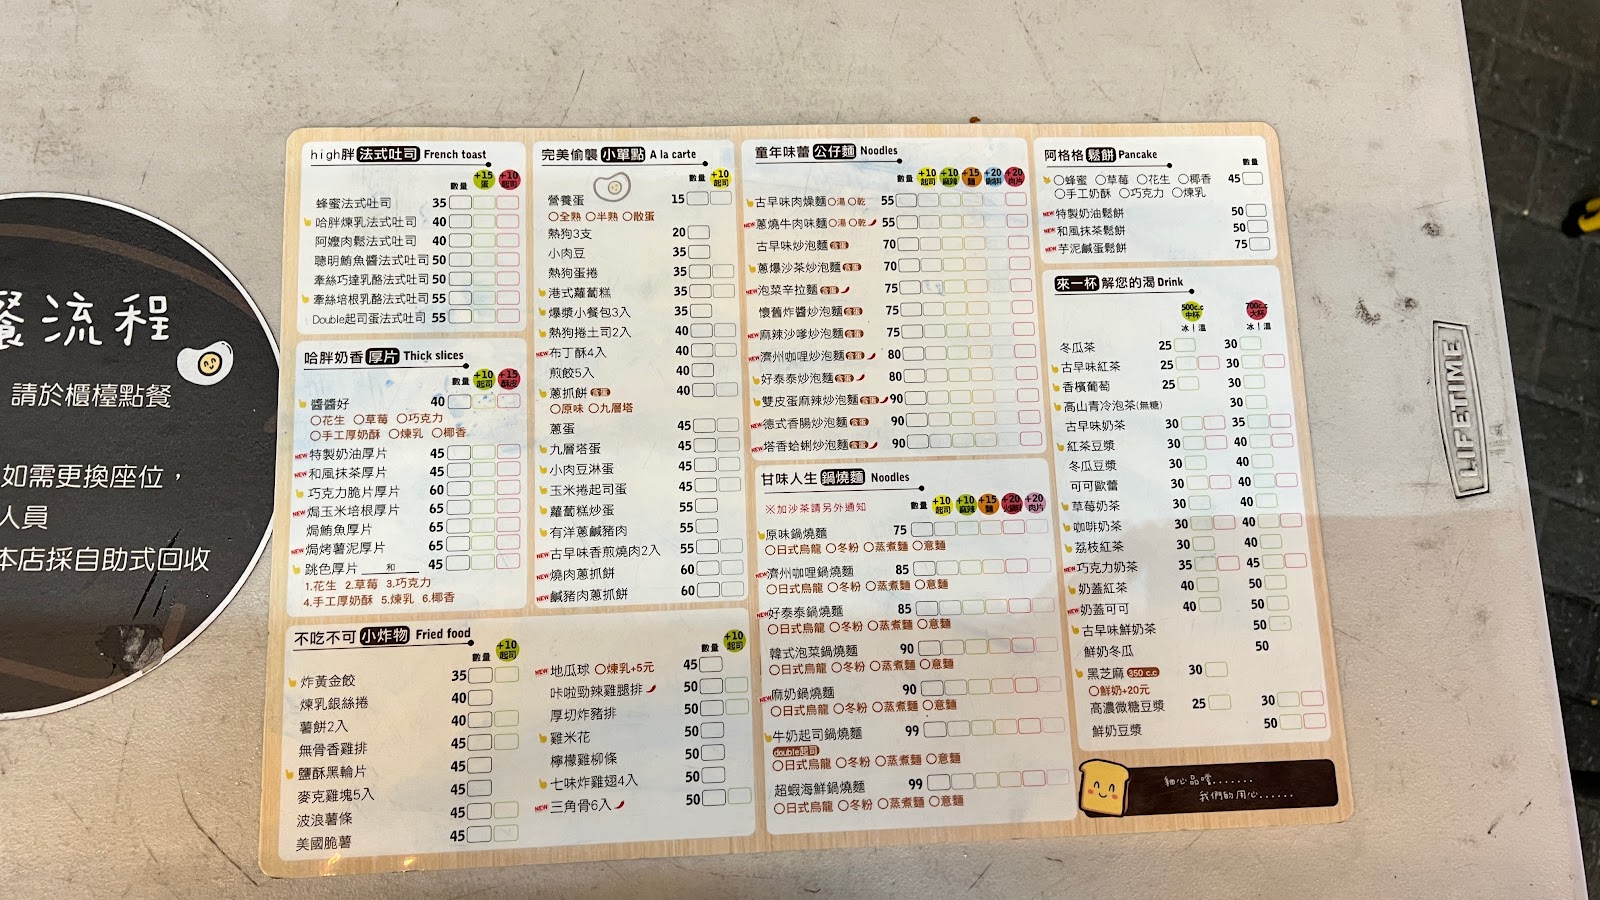 餐流程
請於櫃檯點餐
如需更換座位，
人員
本店採自助式回收
high胖 法式吐司 French toast
數量 +15蛋 +10起司
蜂蜜法式吐司 35
哈胖煉乳法式吐司 40
阿嬤肉鬆法式吐司 40
聰明鮪魚醬法式吐司 50
牽絲巧達乳酪法式吐司 50
牽絲培根乳酪法式吐司 55
Double起司蛋法式吐司 55
哈胖奶香 厚片 Thick slices
數量 +10起司 +15酥皮
醬醬好 40
○花生 ○草莓 ○巧克力
○手工厚奶酥 ○煉乳 ○椰香
NEW 特製奶油厚片 45
NEW 和風抹茶厚片 45
巧克力脆片厚片 60
NEW 焗玉米培根厚片 65
焗鮪魚厚片 65
NEW 焗烤薯泥厚片 65
跳色厚片 ＿＿和＿＿ 45
1.花生 2.草莓 3.巧克力
4.手工厚奶酥 5.煉乳 6.椰香
不吃不可 小炸物 Fried food
數量 +10起司
炸黃金餃 35
煉乳銀絲捲 40
薯餅2入 40
無骨香雞排 45
鹽酥黑輪片 45
麥克雞塊5入 45
波浪薯條 45
美國脆薯 45
數量 +10起司
NEW 地瓜球 ○煉乳+5元 45
咔啦勁辣雞腿排 50
厚切炸豬排 50
雞米花 50
檸檬雞柳條 50
七味炸雞翅4入 50
NEW 三角骨6入 50
完美偷襲 小單點 A la carte
數量 +10起司
營養蛋 15
○全熟 ○半熟 ○散蛋
熱狗3支 20
小肉豆 35
熱狗蛋捲 35
港式蘿蔔糕 35
爆漿小餐包3入 35
熱狗捲土司2入 40
NEW 布丁酥4入 40
煎餃5入 40
蔥抓餅 含蛋 40
○原味 ○九層塔
蔥蛋 45
九層塔蛋 45
小肉豆淋蛋 45
玉米捲起司蛋 45
蘿蔔糕炒蛋 55
有洋蔥鹹豬肉 55
NEW 古早味香煎燒肉2入 55
NEW 燒肉蔥抓餅 60
NEW 鹹豬肉蔥抓餅 60
童年味蕾 公仔麵 Noodles
數量 +10起司 +10麻辣 +15麵 +20 +20肉片
古早味肉燥麵○湯 ○乾 55
NEW 蔥燒牛肉味麵○湯 ○乾 55
古早味炒泡麵 含蛋 70
蔥爆沙茶炒泡麵 含蛋 70
NEW 泡菜辛拉麵 含蛋 75
懷舊炸醬炒泡麵 含蛋 75
NEW 麻辣沙嗲炒泡麵 含蛋 75
NEW 濟州咖哩炒泡麵 含蛋 80
好泰泰炒泡麵 含蛋 80
雙皮蛋麻辣炒泡麵 含蛋 90
NEW 德式香腸炒泡麵 含蛋 90
NEW 塔香蛤蜊炒泡麵 含蛋 90
甘味人生 鍋燒麵 Noodles
※加沙茶請另外通知
數量 +10起司 +10麻辣 +15麵 +20 +20肉片
原味鍋燒麵 75
○日式烏龍 ○冬粉 ○蒸煮麵 ○意麵
NEW 濟州咖哩鍋燒麵 85
○日式烏龍 ○冬粉 ○蒸煮麵 ○意麵
NEW 好泰泰鍋燒麵 85
○日式烏龍 ○冬粉 ○蒸煮麵 ○意麵
韓式泡菜鍋燒麵 90
○日式烏龍 ○冬粉 ○蒸煮麵 ○意麵
NEW 麻奶鍋燒麵 90
○日式烏龍 ○冬粉 ○蒸煮麵 ○意麵
牛奶起司鍋燒麵 99
double起司
○日式烏龍 ○冬粉 ○蒸煮麵 ○意麵
超蝦海鮮鍋燒麵 99
○日式烏龍 ○冬粉 ○蒸煮麵 ○意麵
阿格格 鬆餅 Pancake
數量
○蜂蜜 ○草莓 ○花生 ○椰香 45
○手工奶酥 ○巧克力 ○煉乳
NEW 特製奶油鬆餅 50
NEW 和風抹茶鬆餅 50
NEW 芋泥鹹蛋鬆餅 75
來一杯 解您的渴 Drink
500c.c中杯 700c.c大杯
冰｜溫 冰｜溫
冬瓜茶 25 30
古早味紅茶 25 30
香檳葡萄 25 30
高山青冷泡茶(無糖) 30
古早味奶茶 30 35
紅茶豆漿 30 40
冬瓜豆漿 30 40
可可歐蕾 30 40
草莓奶茶 30 40
咖啡奶茶 30 40
荔枝紅茶 30 40
NEW 巧克力奶茶 35 45
奶蓋紅茶 40 50
NEW 奶蓋可可 40 50
古早味鮮奶茶 50
鮮奶冬瓜 50
黑芝麻 350 c.c 30
○鮮奶+20元
高濃微糖豆漿 25 30
鮮奶豆漿 50
細心品嚐.......
我們的用心......
LIFETIME